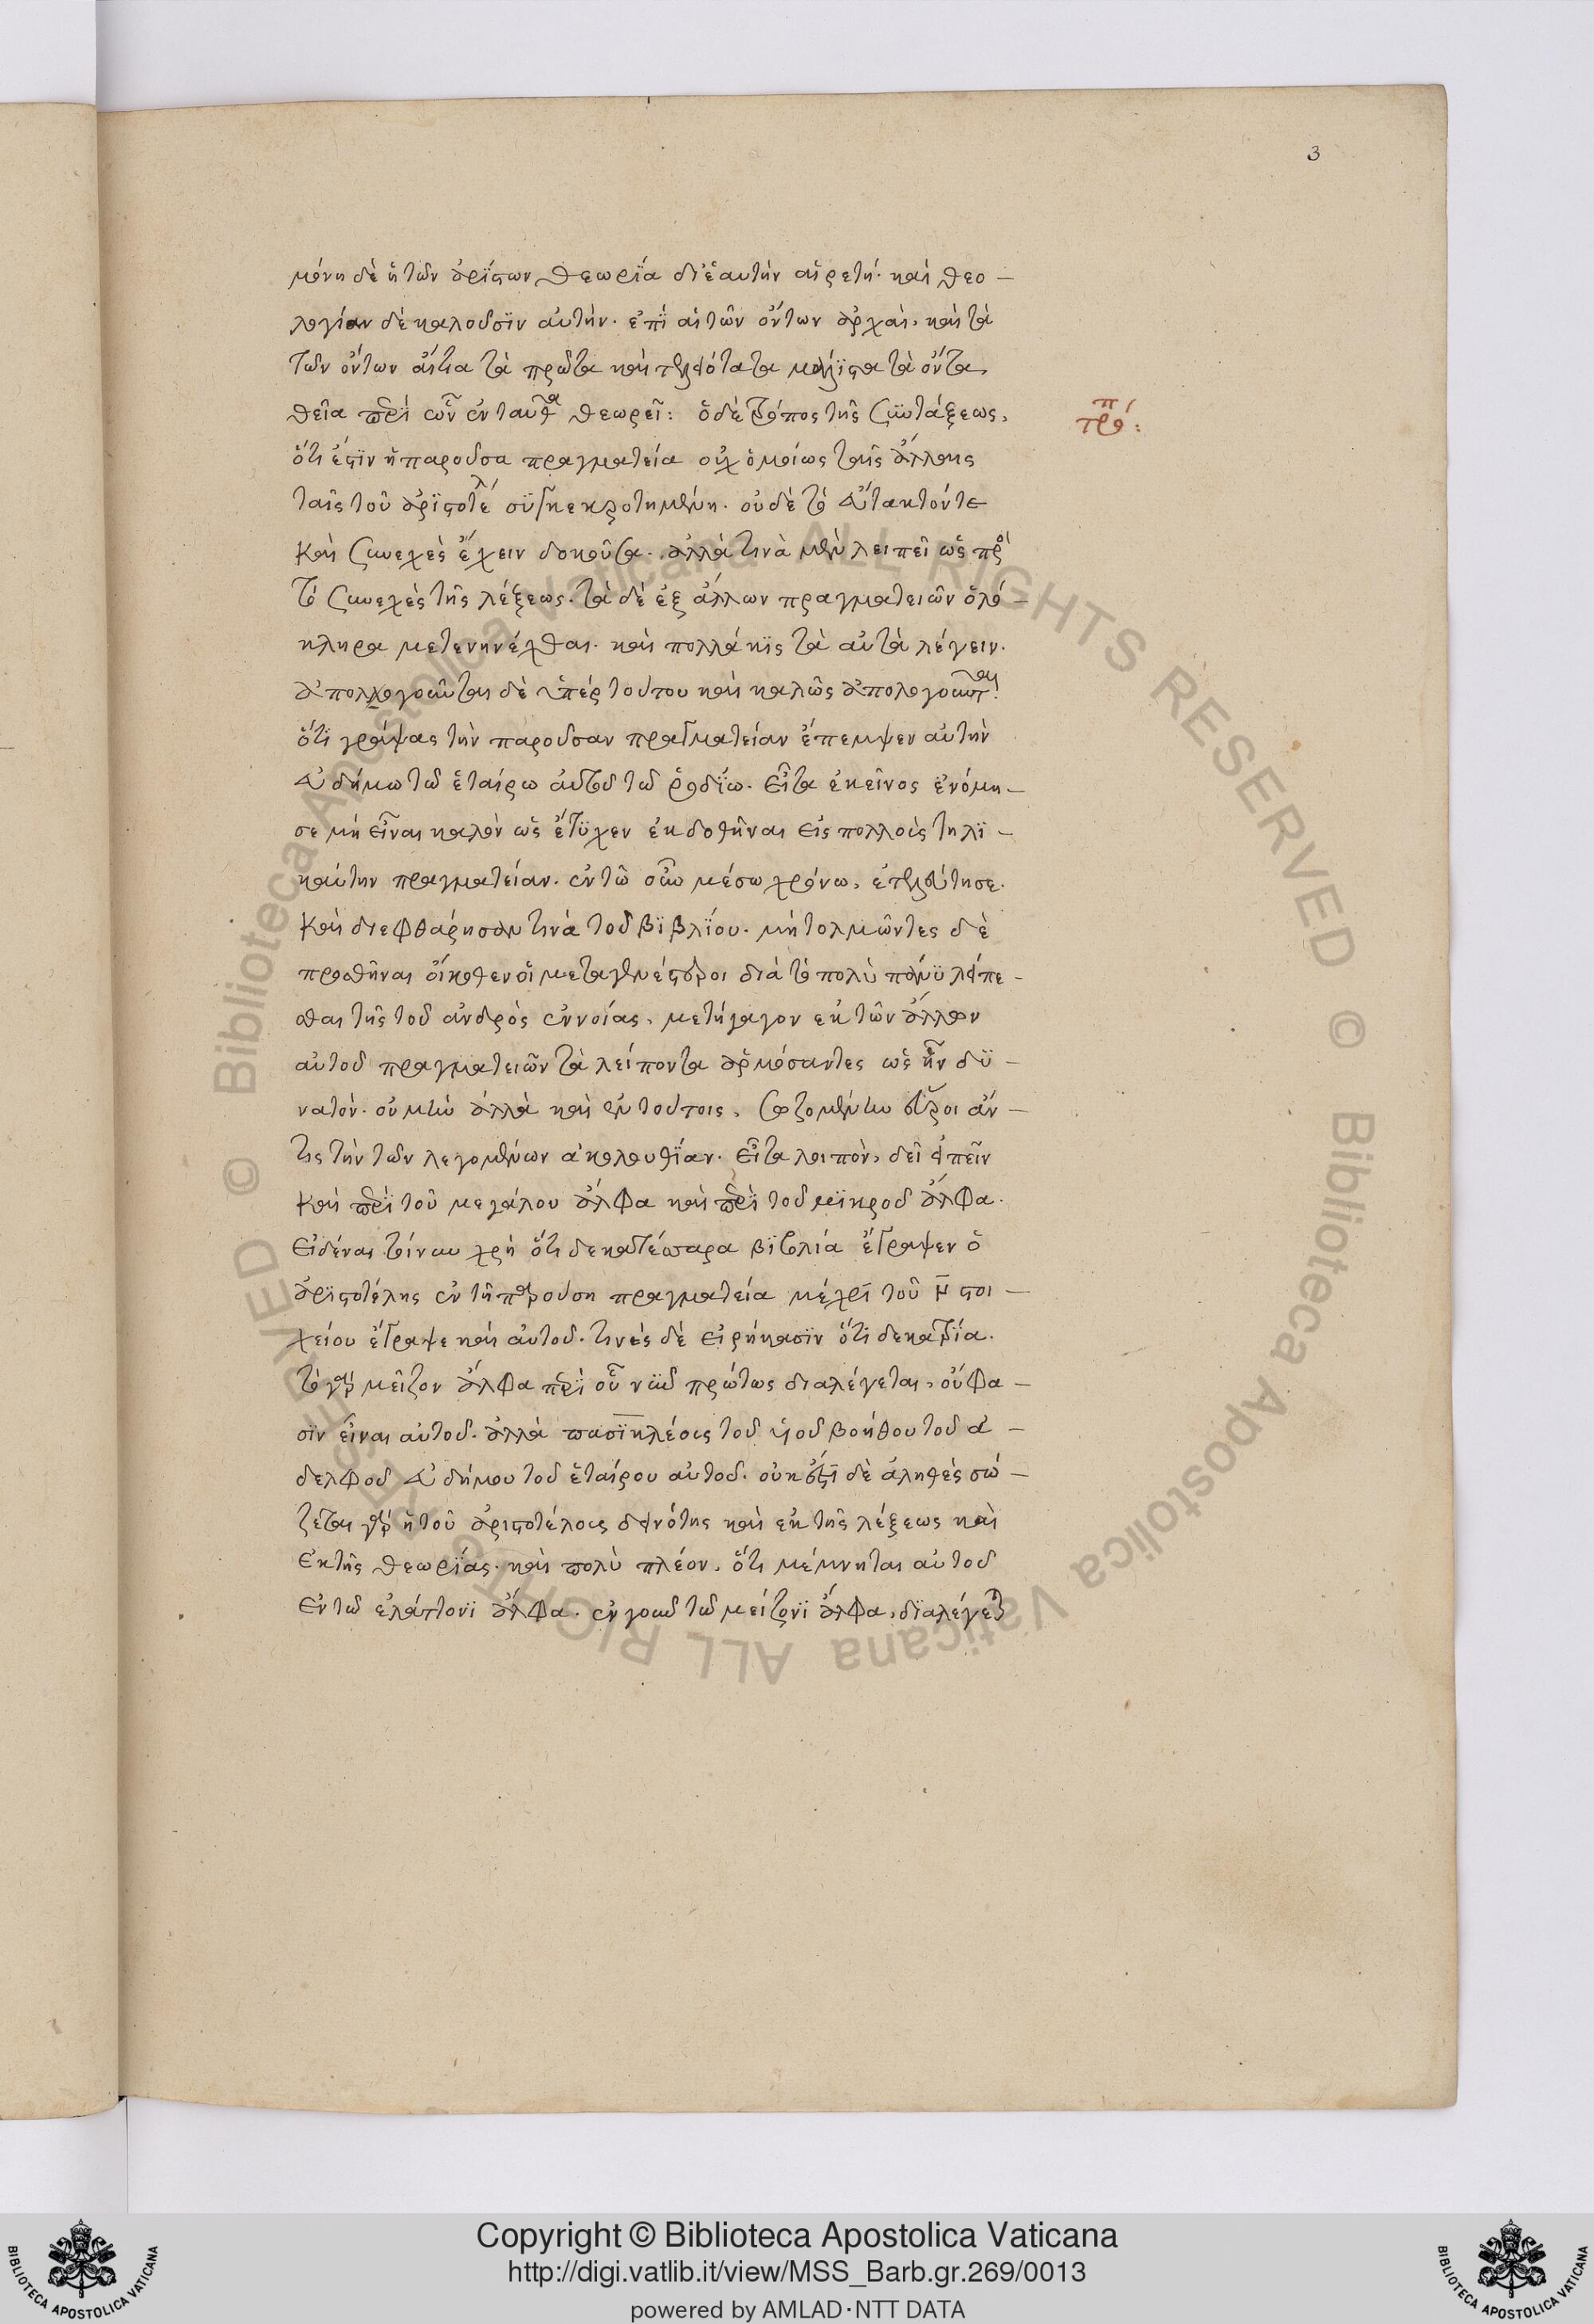 3
μόνη δὲ ἡ τῶν ἀρίστων θεωρία δι' ἑαυτὴν αἱρετή· καὶ θεο –
λογίαν δὲ καλοῦσιν αὐτήν· ἐπὶ αἱ τῶν ὄντων ἀρχαὶ, καὶ τὰ
τῶν ὄντων αἴτια τὰ πρῶτα καὶ τελειότατα μάλιστα τὰ ὄντα,
θεῖα περὶ ὧν ἐνταῦθα θεωρεῖ: ὁ δὲ τρόπος τῆς συντάξεως,
τρόπ:
ὅτι ἐστὶν ἡ παροῦσα πραγματεία οὐχ ὁμοίως ταῖς ἄλλαις
ταῖς τοῦ ἀριστοτέλ συγκεκροτημένη· οὐδὲ τὸ εὔτακτόν τε
καὶ συνεχὲς ἔχειν δοκοῦσα· ἀλλά τινα μὲν λείπει ὡς πρὸς
τὸ συνεχὲς τῆς λέξεως· τὰ δὲ ἐξ ἄλλων πραγματειῶν ὁλό –
κληρα μετενηνέχθαι· καὶ πολλάκις τὰ αὐτὰ λέγειν·
ἀπολλογοῦνται δὲ ὑπὲρ τούτου καὶ καλῶς ἀπολογοῦνται
ὅτι γράψας τὴν παροῦσαν πραγματείαν ἔπεμψεν αὐτὴν
εὐδήμω τῶ ἑταίρω αὐτοῦ τῶ ῥοδίω· εἶτα ἐκεῖνος ἐνόμη –
σε μὴ εἶναι καλὸν ὡς ἔτυχεν ἐκδοθῆναι εἰς πολλοὺς τηλι –
καύτην πραγματείαν· ἐν τῶ οὖν μέσω χρόνω, ἐτελεύτησε·
καὶ διεφθάρησάν τινα τοῦ βιβλίου· μὴ τολμῶντες δὲ
προσθῆναι οἴκοθεν οἱ μεταγενέστεροι διὰ τὸ πολὺ πάνυ λείπε –
σθαι τῆς τοῦ ἀνδρὸς ἐννοίας, μετήγαγον ἐκ τῶν ἄλλων
αὐτοῦ πραγματειῶν τὰ λείποντα ἁρμόσαντες ὡς ἦν δυ –
νατόν· οὐ μὴν ἀλλὰ καὶ ἐν τούτοις, σωζομένην εὕροι ἄν –
τις τὴν τῶν λεγομένων ἀκολουθίαν· εἶτα λοιπὸν, δεῖ εἰπεῖν
καὶ περὶ τοῦ μεγάλου ἄλφα καὶ περὶ τοῦ μικροῦ ἄλφα·
εἰδέναι τοίνυν χρὴ ὅτι δεκατέσσαρα βιβλία ἔγραψεν ὁ
ἀριστοτέλης ἐν τῆ παρούση πραγματεία μέχρι τοῦ ν̄ στοι –
χείου ἔγραψε καὶ αὐτοῦ· τινὲς δὲ εἰρήκασιν ὅτι δεκατρία·
τὸ γὰρ μεῖζον ἄλφα περὶ οὗ νῦν πρώτως διαλέγεται, οὔ φα –
σιν εἶναι αὐτοῦ· ἀλλὰ πασικλέους τοῦ υἱοῦ βοήθου τοῦ ἀ –
δελφοῦ εὐδήμου τοῦ ἑταίρου αὐτοῦ· οὐκ ἔστι δὲ ἀληθὲς σώ –
ζεται γὰρ ἡ τοῦ ἀριστοτέλους δεινότης καὶ ἐκ τῆς λέξεως καὶ
ἐκ τῆς θεωρίας· καὶ πολὺ πλέον, ὅτι μέμνηται αὐτοῦ
ἐν τῶ ἐλάττονι ἄλφα· ἐν γοῦν τῶ μείζονι ἄλφα, διαλέγεται
BIBLIOTECA APOSTOLICA VATICANA
Copyright © Biblioteca Apostolica Vaticana
http://digi.vatlib.it/view/MSS_Barb.gr.269/0013
powered by AMLAD·NTT DATA
BIBLIOTECA APOSTOLICA VATICANA
© Biblioteca Apostolica Vaticana ALL RIGHTS RESERVED © Biblioteca Apostolica Vaticana ALL RIGHTS RESERVED